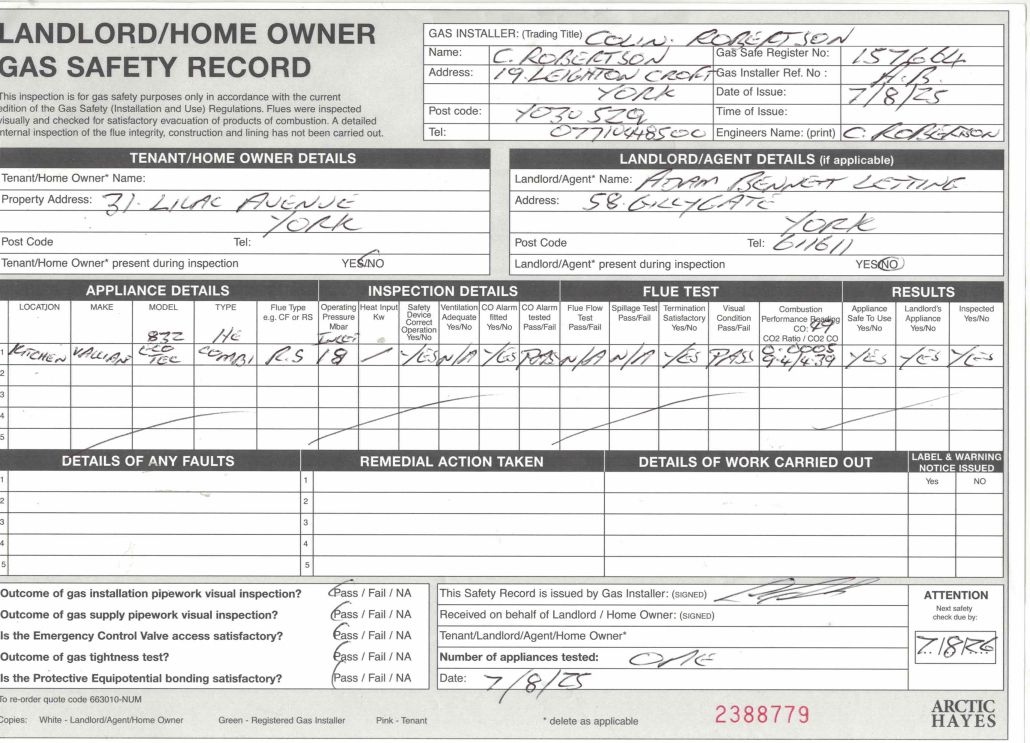 LANDLORD/HOME OWNER
GAS SAFETY RECORD
This inspection is for gas safety purposes only in accordance with the current
edition of the Gas Safety (Installation and Use) Regulations. Flues were inspected
visually and checked for satisfactory evacuation of products of combustion. A detailed
internal inspection of the flue integrity, construction and lining has not been carried out.
GAS INSTALLER: (Trading Title) COLIN. ROBERTSON
Name: C. ROBERTSON
Gas Safe Register No: 157664
Address: 19. LEIGHTON CROFT
Gas Installer Ref. No : H.B.
YORK
Date of Issue: 7/8/25
Post code: YO30 5ZQ
Time of Issue:
Tel: 07710448500
Engineers Name: (print) C. ROBERTSON
TENANT/HOME OWNER DETAILS
Tenant/Home Owner* Name:
Property Address: 31. LILAC AVENUE
YORK
Post Code Tel:
Tenant/Home Owner* present during inspection YES/NO
LANDLORD/AGENT DETAILS (if applicable)
Landlord/Agent* Name: ADAM BENNETT LETTING
Address: 58. GILLYGATE
YORK
Post Code Tel: 611611
Landlord/Agent* present during inspection YES/NO
APPLIANCE DETAILS INSPECTION DETAILS FLUE TEST RESULTS
LOCATION MAKE MODEL TYPE Flue Type e.g. CF or RS Operating Pressure Mbar Heat Input Kw Safety Device Correct Operation Yes/No Ventilation Adequate Yes/No CO Alarm fitted Yes/No CO Alarm tested Pass/Fail Flue Flow Test Pass/Fail Spillage Test Pass/Fail Termination Satisfactory Yes/No Visual Condition Pass/Fail Combustion Performance Reading CO: 49 CO2 Ratio / CO2 CO Appliance Safe To Use Yes/No Landlord's Appliance Yes/No Inspected Yes/No
832 HE INLET
1 KITCHEN VALLIAN ECO TEC COMBI R.S 18 / YES N/A YES PASS N/A N/A YES PASS 0.0005 9.4/4.39 YES YES YES
2
3
4
5
DETAILS OF ANY FAULTS REMEDIAL ACTION TAKEN DETAILS OF WORK CARRIED OUT LABEL & WARNING NOTICE ISSUED
Yes NO
1 1
2 2
3 3
4 4
5 5
Outcome of gas installation pipework visual inspection? Pass / Fail / NA
Outcome of gas supply pipework visual inspection? Pass / Fail / NA
Is the Emergency Control Valve access satisfactory? Pass / Fail / NA
Outcome of gas tightness test? Pass / Fail / NA
Is the Protective Equipotential bonding satisfactory? Pass / Fail / NA
This Safety Record is issued by Gas Installer: (SIGNED)
Received on behalf of Landlord / Home Owner: (SIGNED)
Tenant/Landlord/Agent/Home Owner*
Number of appliances tested: ONE
Date: 7/8/25
ATTENTION
Next safety
check due by:
7/8/26
To re-order quote code 663010-NUM
Copies: White - Landlord/Agent/Home Owner Green - Registered Gas Installer Pink - Tenant
* delete as applicable
2388779
ARCTIC
HAYES